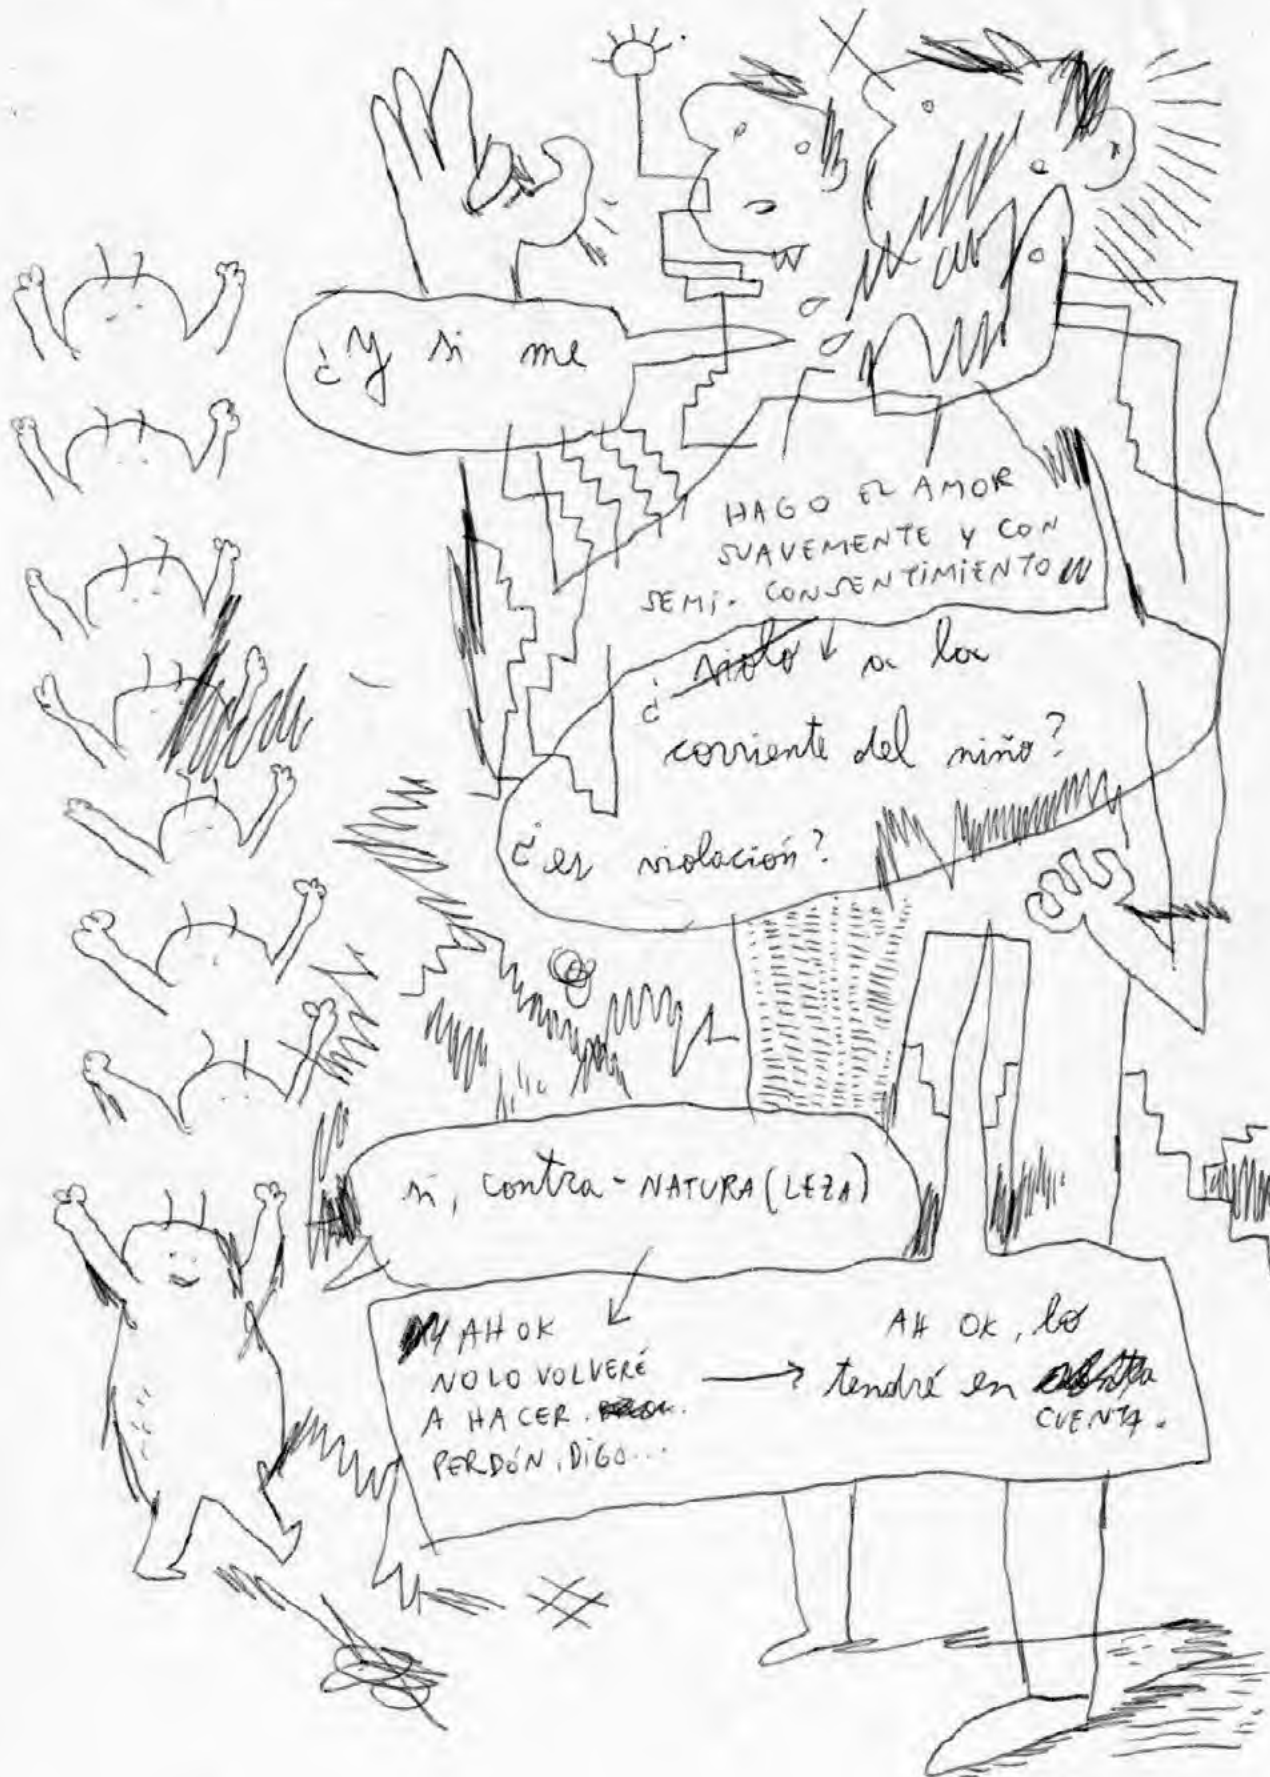 ¿Y si me
HAGO EL AMOR
SUAVEMENTE Y CON
SEMI-CONSENTIMIENTO
¿violo a la
corriente del niño?
¿es violación?
si, contra-NATURA(LEZA)
AH OK
NO LO VOLVERÉ
A HACER.
PERDÓN, DIGO...
AH OK, lo
tendré en
CUENTA.